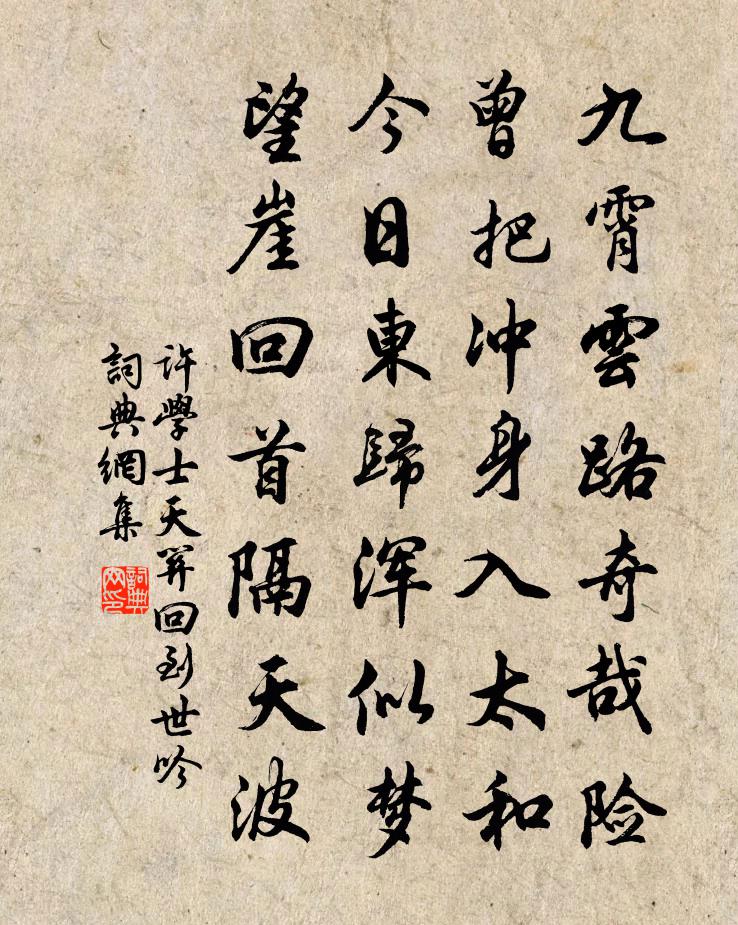 九霄雲路奇哉险
曾把冲身入太和
今日東歸浑似梦
望崖回首隔天波
许學士天回到世吟
詞典網集
詞典网印